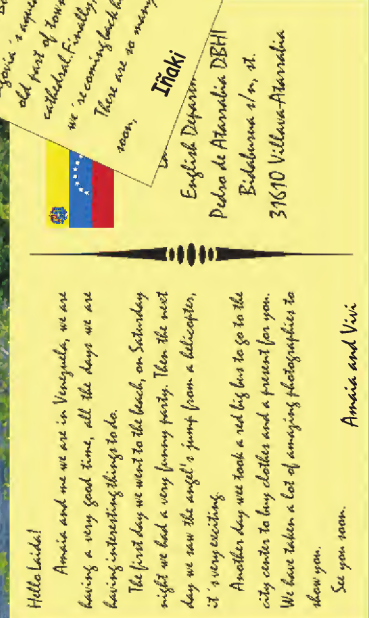 Hello Laida!
Amaia and me we are in Venezuela, we are
having a very good time, all the days we are
having interesting things to do.
The first day we went to the beach, on Saturday
night we had a very funny party. Then the next
day we saw the angel's jump from a helicopter,
it´s very exciting.
Another day wee took a red big bus to go to the
city center to buy clothes and a present for you.
We have taken a lot of amazing photographies to
show you.
See you soon.
Amaia and Vivi
English
Pedro de Atarrabia DBHI
Bidaburua s/n, st.
31610 Villava-Atarrabia
old part of town
cathedral. Finally,
we´re coming back
These are so many
soon,
Iñaki